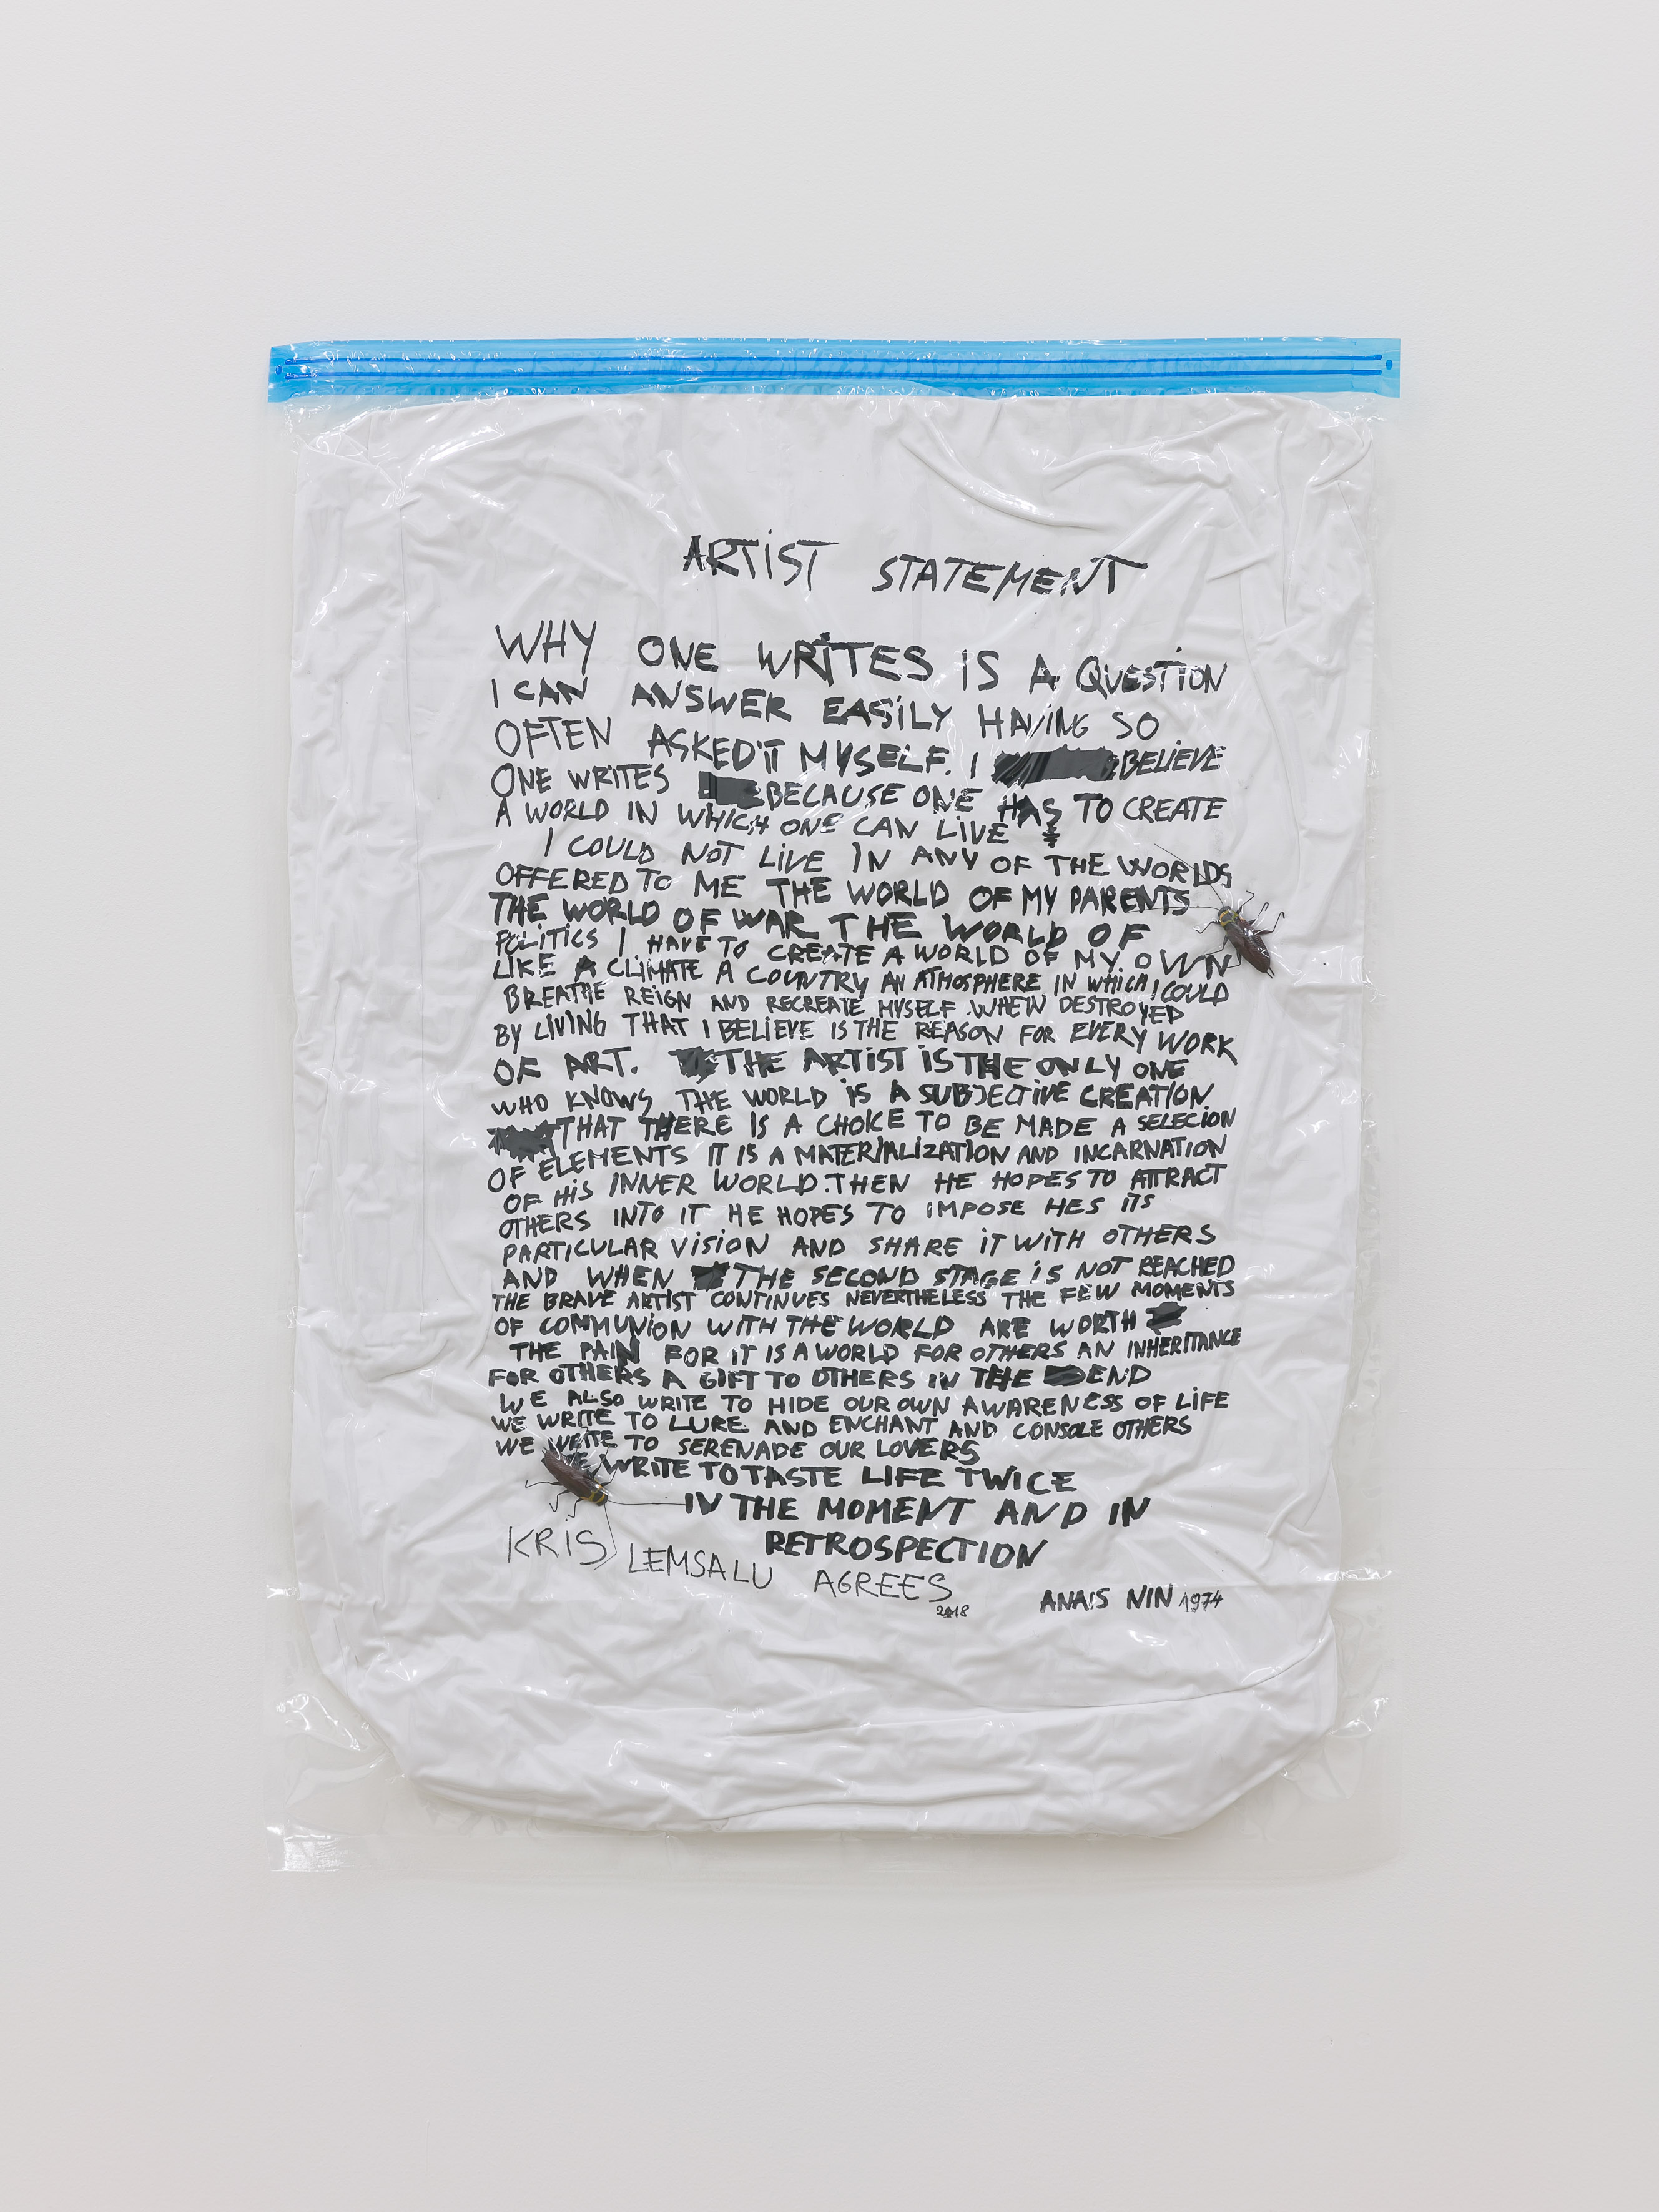 ARTIST STATEMENT
WHY ONE WRITES IS A QUESTION
I CAN ANSWER EASILY HAVING SO
OFTEN ASKED IT MYSELF. I BELIEVE
ONE WRITES BECAUSE ONE HAS TO CREATE
A WORLD IN WHICH ONE CAN LIVE
I COULD NOT LIVE IN ANY OF THE WORLDS
OFFERED TO ME THE WORLD OF MY PARENTS
THE WORLD OF WAR THE WORLD OF
POLITICS I HAVE TO CREATE A WORLD OF MY OWN
LIKE A CLIMATE A COUNTRY AN ATMOSPHERE IN WHICH I COULD
BREATHE REIGN AND RECREATE MYSELF WHEN DESTROYED
BY LIVING THAT I BELIEVE IS THE REASON FOR EVERY WORK
OF ART. THE ARTIST IS THE ONLY ONE
WHO KNOWS THE WORLD IS A SUBJECTIVE CREATION
THAT THERE IS A CHOICE TO BE MADE A SELECION
OF ELEMENTS IT IS A MATERIALIZATION AND INCARNATION
OF HIS INNER WORLD. THEN HE HOPES TO ATTRACT
OTHERS INTO IT HE HOPES TO IMPOSE HES ITS
PARTICULAR VISION AND SHARE IT WITH OTHERS
AND WHEN THE SECOND STAGE IS NOT REACHED
THE BRAVE ARTIST CONTINUES NEVERTHELESS THE FEW MOMENTS
OF COMMUNION WITH THE WORLD ARE WORTH
THE PAIN FOR IT IS A WORLD FOR OTHERS AN INHERITANCE
FOR OTHERS A GIFT TO OTHERS IN THE END
WE ALSO WRITE TO HIDE OUR OWN AWARENESS OF LIFE
WE WRITE TO LURE AND ENCHANT AND CONSOLE OTHERS
WE WRITE TO SERENADE OUR LOVERS
WE WRITE TO TASTE LIFE TWICE
IN THE MOMENT AND IN
RETROSPECTION
KRIS LEMSALU AGREES
2018
ANAIS NIN 1974